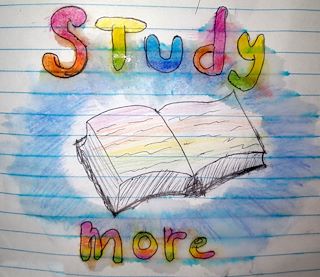 Study
more